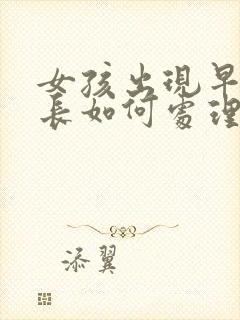 女孩出現早
長如何處理
添翼